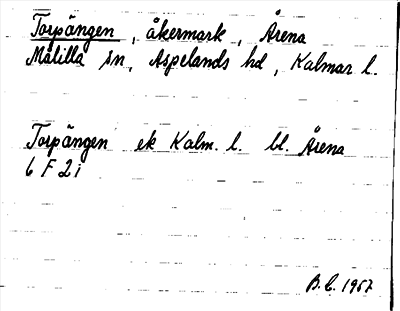 Torpängen, åkermark, Årena
Målilla sn, Aspelands hd, Kalmar l.
Torpängen ek Kalm. l. bl. Årena
6 F 2 i
B.C. 1957